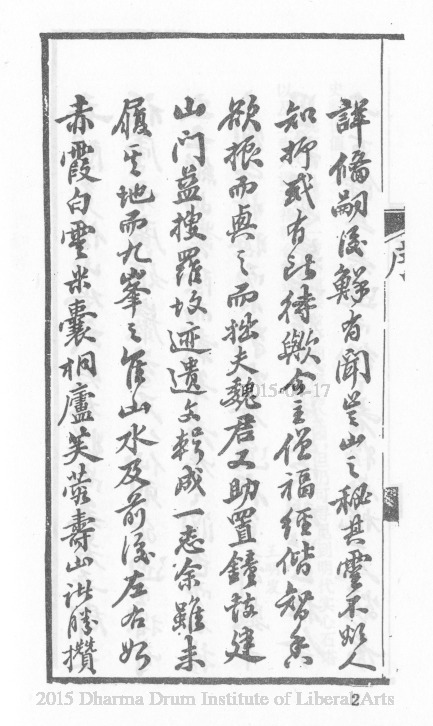 詳備嗣後鮮有聞豈山之秘其靈不欲人
知抑或有所待歟今主僧福經偕智□
欲振而興之而拙夫魏君又助置鐘鼓建
山门益搜羅故迹遺文輯成一志余雖未
履其地而九峯之佳山水及前後左右如
赤霞白雲米囊桐廬芙蓉壽山諸勝攢
序
2015-04-17
2
2015 Dharma Drum Institute of Liberal Arts